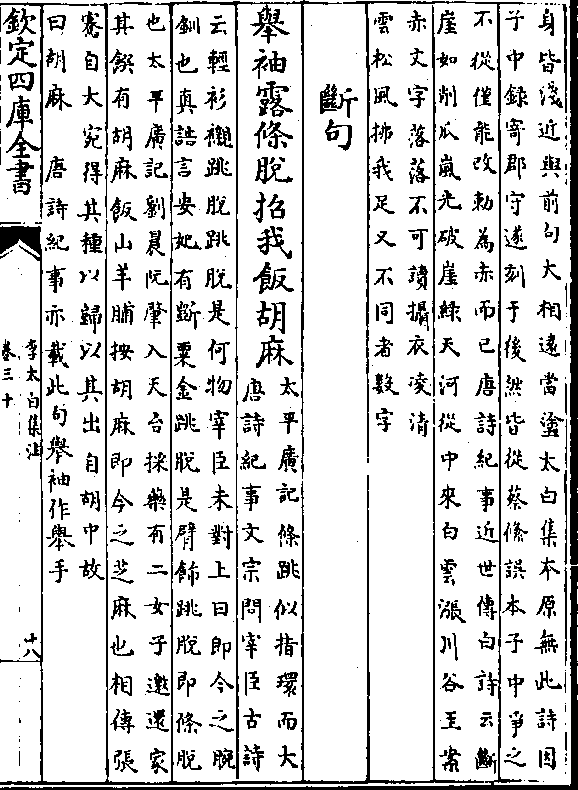 身皆淺近與前句大相遠當塗太白集本原無此詩因
子中録寄郡守遂刻于後然皆從蔡絛誤本子中爭之
不從僅能改勅為赤而已唐詩紀事近世傳白詩云斷
崖如削瓜嵐光破崖緑天河從中來白雲漲川谷玉案
赤文字落落不可讀攝衣凌清
雲松風拂我足又不同者數字
斷句
舉袖露條脫招我飯胡麻
太平廣記條跳似指環而大
唐詩紀事文宗問宰臣古詩
云輕衫襯跳脫跳脫是何物宰臣未對上曰即今之腕
釧也真誥言安妃有斵粟金跳脫是臂飾跳脫即條脫
也太平廣記劉晨阮肇入天台採藥有二女子邀還家
其饌有胡麻飯山羊脯按胡麻即今之芝麻也相傳張
騫自大宛得其種以歸以其出自胡中故
曰胡麻 唐詩紀事亦載此句舉袖作舉手
欽定四庫全書
李太白集注
卷三十
十八